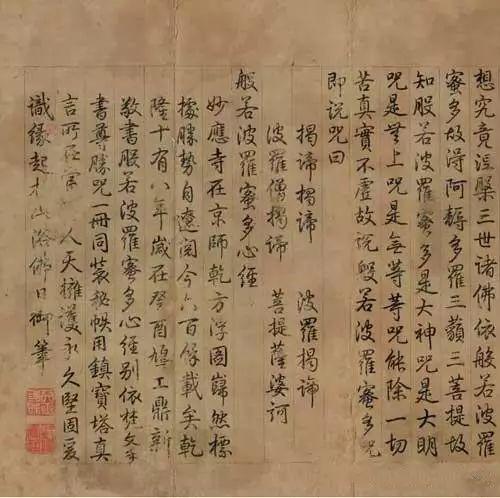 想究竟涅槃三世諸佛依般若波羅
蜜多故得阿耨多羅三藐三菩提故
知般若波羅蜜多是大神咒是大明
咒是無上咒是無等等咒能除一切
苦真實不虛故說般若波羅蜜多咒
即說咒曰
揭諦揭諦 波羅揭諦
波羅僧揭諦 菩提薩婆訶
般若波羅蜜多心經
妙應寺在京師乾方浮圖巋然標
據勝勢自遼閱今六百餘載矣乾
隆十有八年歲在癸酉鳩工鼎新
敬書般若波羅蜜多心經別依梵文手
書尊勝咒一冊同裝祕帙用鎮寶塔真
言所在 人天擁護永久堅固爰
識緣起於此浴佛日御筆